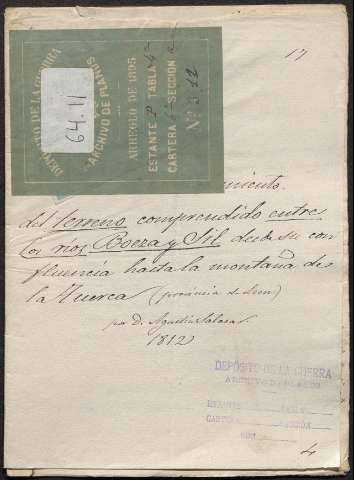 17
DEPÓSITO DE LA GUERRA
ARCHIVO DE PLANOS
64.11
ARREGLO DE 1895
ESTANTE P TABLA 4ª
CARTERA 6ª SECCIÓN
Nº
miento.
del terreno comprendido entre
los rios Boeza y Sil desde su con
fluencia hasta la montaña de
la Tuerca (provincia de Leon)
por D. Agustin
1812
DEPÓSITO DE LA GUERRA
ARCHIVO DE PLANOS
ESTANTE TABLA
CARTERA SECCIÓN
NÚM.
4